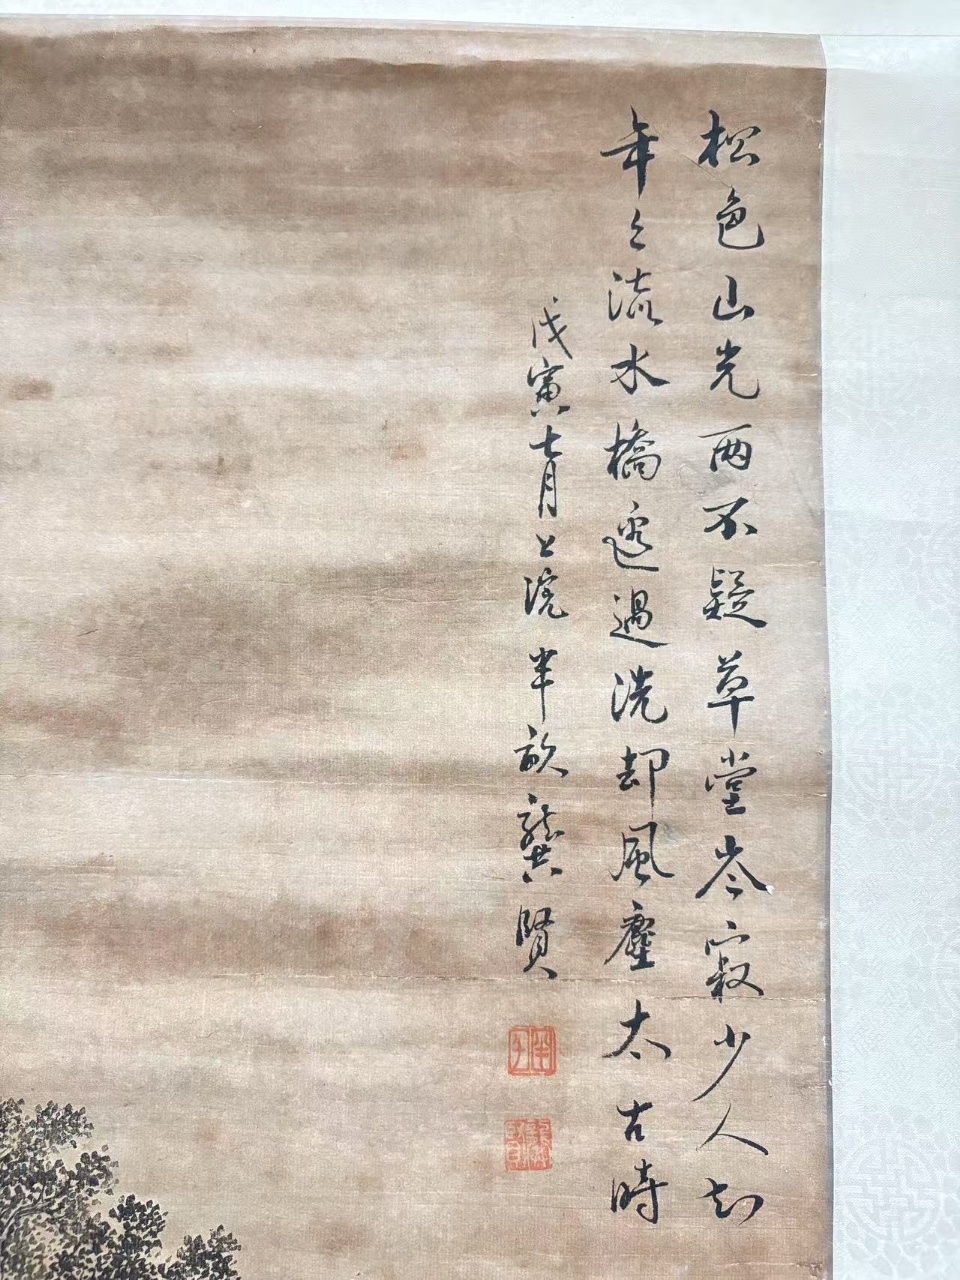 松色山光两不疑草堂岑寂少人知
年々流水橋邊過洗却風塵太古時
戊寅七月上浣半畝龔賢